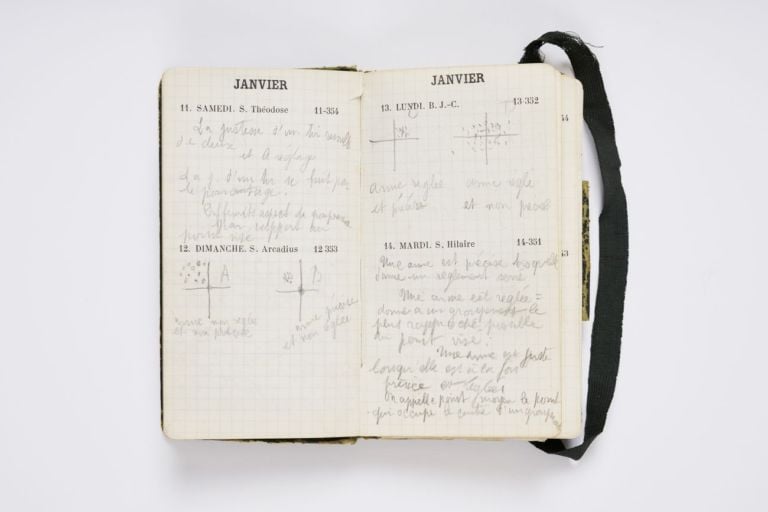 JANVIER
11. SAMEDI. S. Théodose 11-354
La justesse d'un tir
de deux
et le réglage
d'un tir se fait par
le
aspect de
par rapport au
point visé
12. DIMANCHE. S. Arcadius 12 353
A B
arme non réglée
et non précise
arme précise
et non réglée
JANVIER
13. LUNDI. B. J.-C. 13-352
C D
arme réglée
et précise
arme réglée
et non précise
44
14. MARDI. S. Hilaire 14-351
43
Une arme est précise lorsqu'elle
donne un serré
Une arme est réglée =
donne un groupement le
plus rapproché possible
du point visé.
Une arme est juste
lorsqu'elle est à la fois
précise et réglée
On appelle point moyen le point
qui occupe le centre d'un groupement